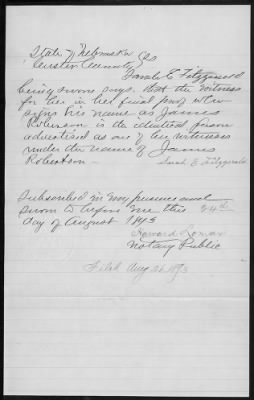 State of Nebraska } SS
Custer County
Sarah E Fitzgerald
being sworn says. that the witness
for her in her final proof who
signs his name as James
Robinson is the identical person
advertised as one of her witnesses
under the name of James
Robertson —
Sarah E Fitzgerald
Subscribed in my presence and
sworn to before me this 24th
day of August 1893
Howard Lomax
Notary Public
Filed Aug 26 1893